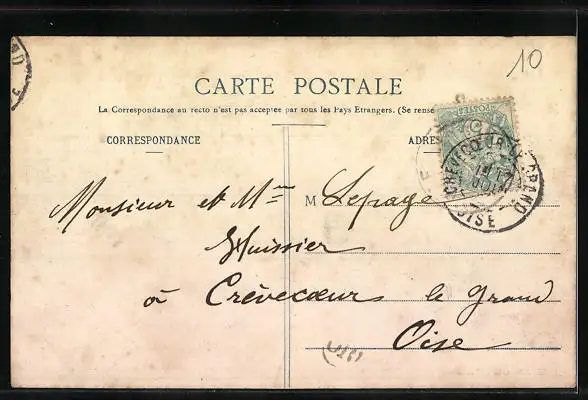 10
CARTE POSTALE
La Correspondance au recto n'est pas acceptée par tous les Pays Etrangers. (Se rense
CORRESPONDANCE
ADRE
POSTES
CRÈVECŒUR-LE-GRAND
OISE
Monsieur et Mme M Lepage
Huissier
à Crèvecœur le Grand
Oise